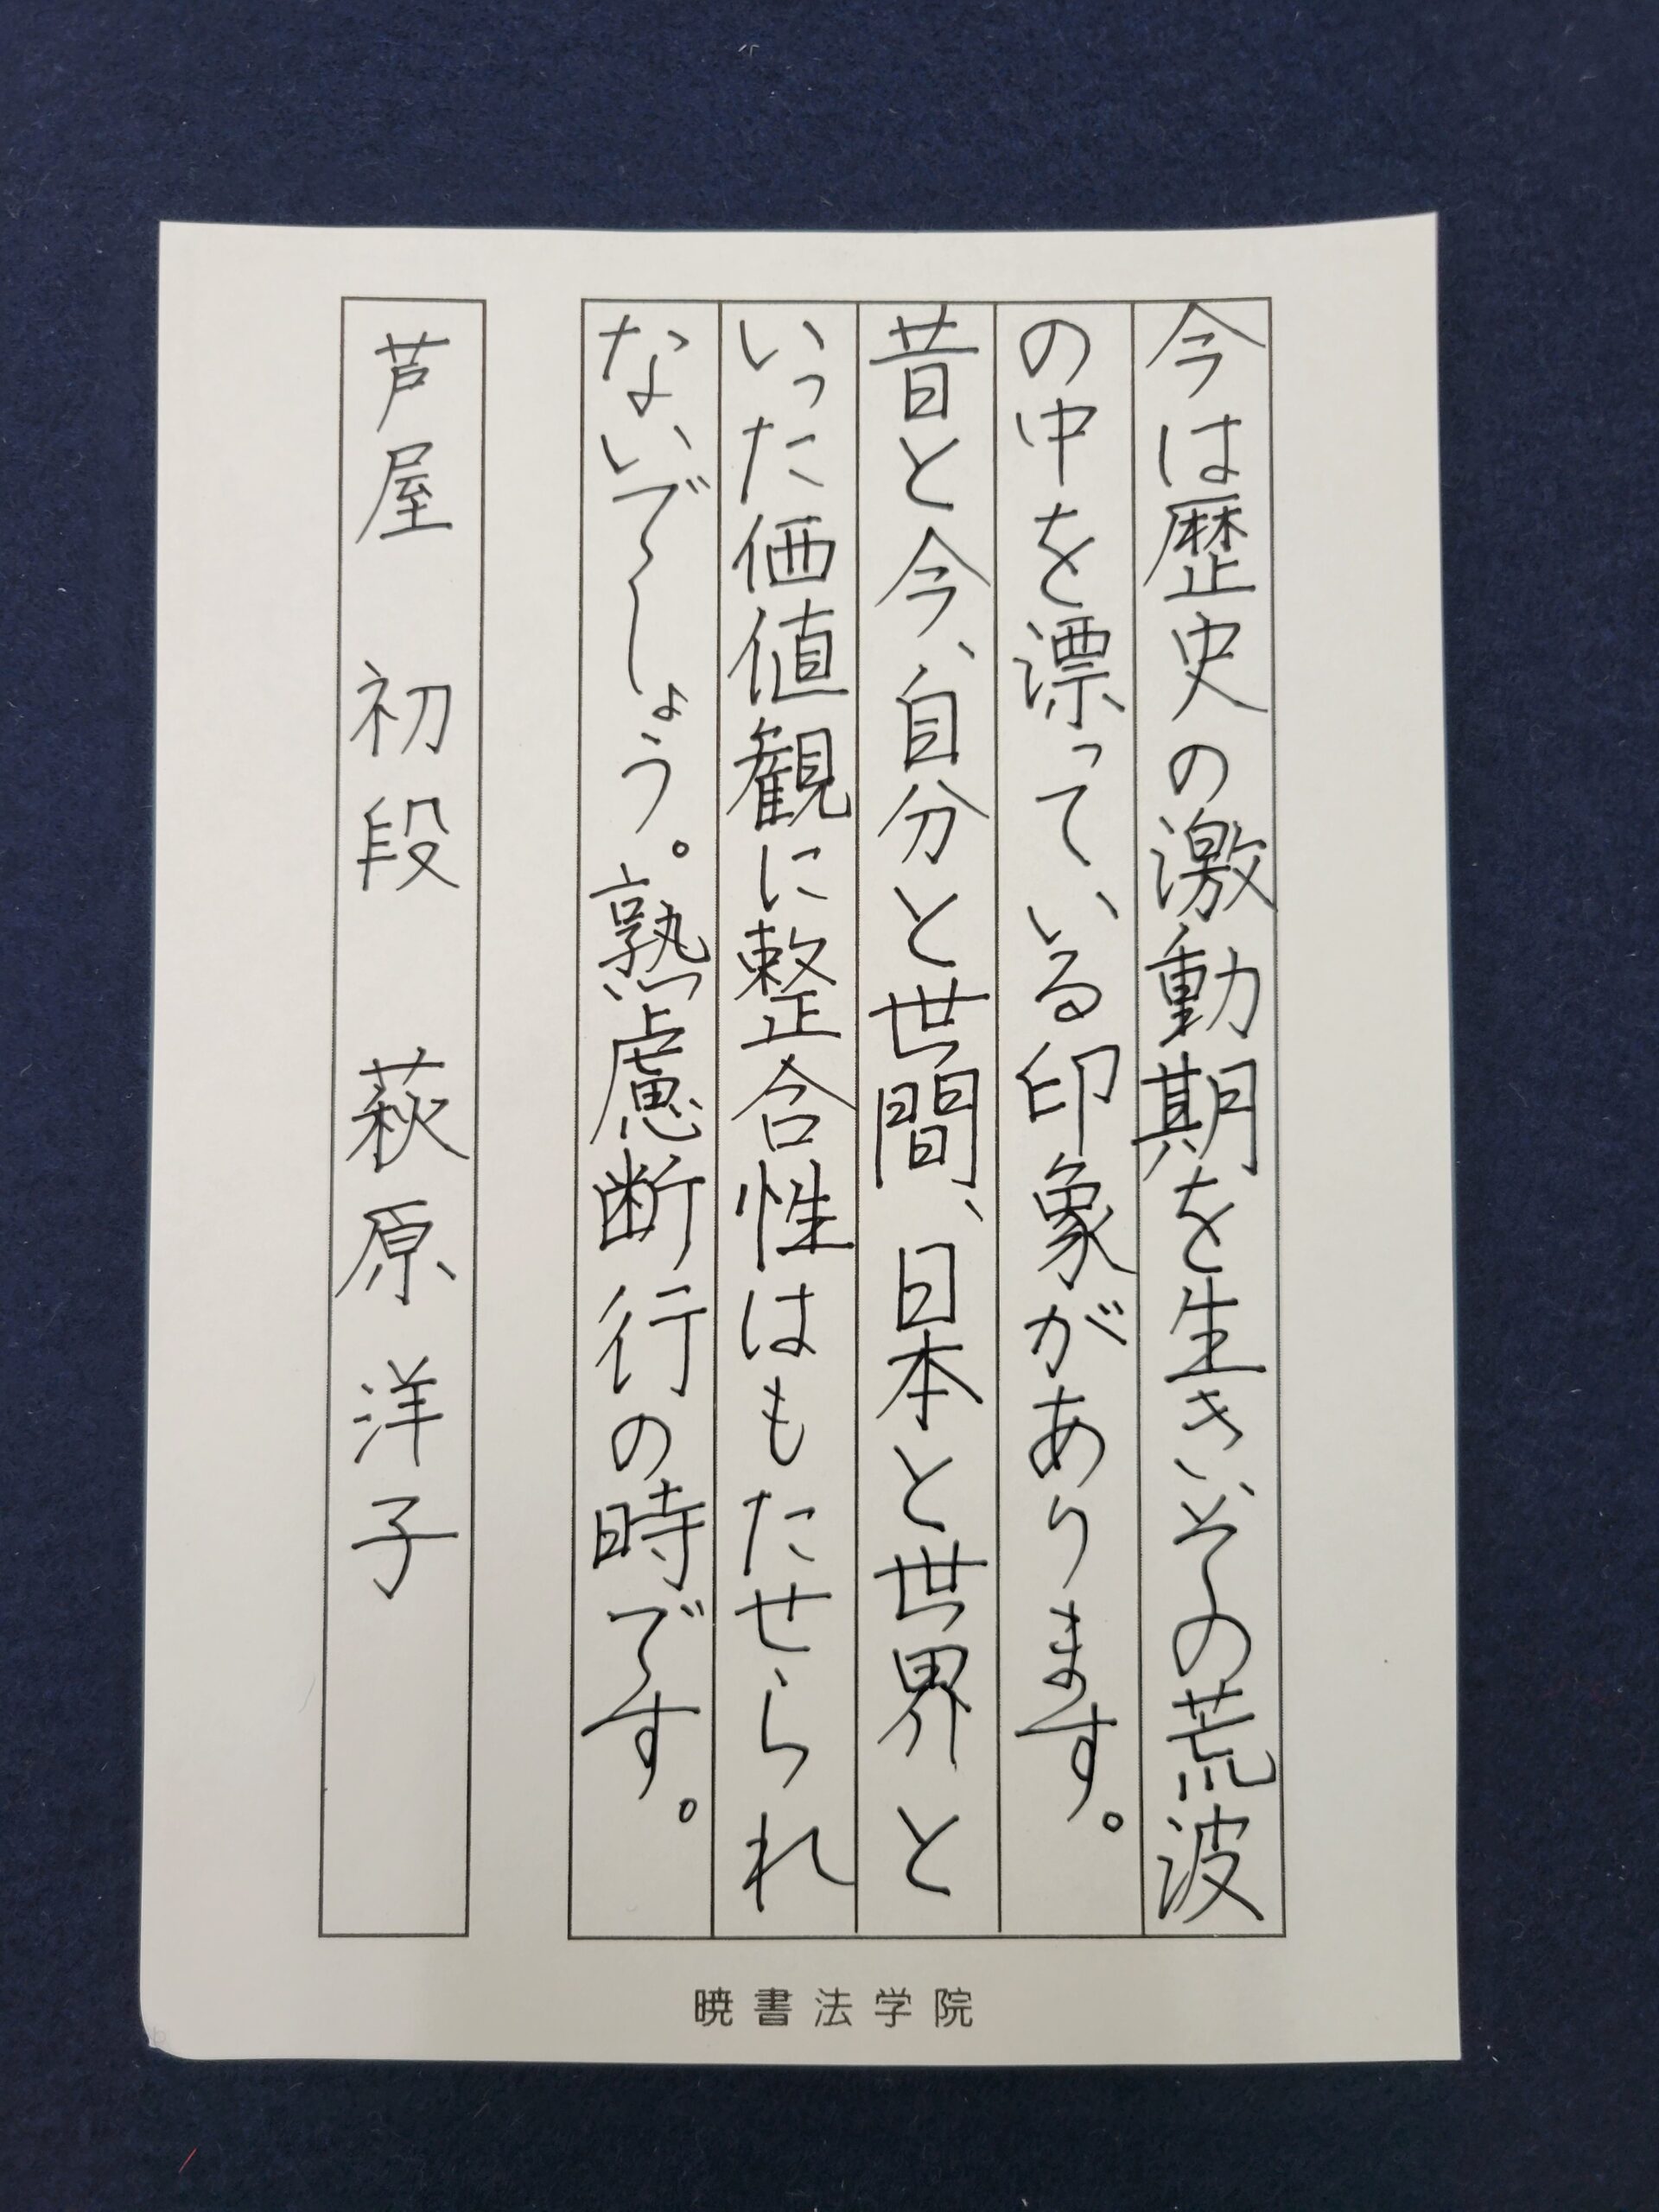 今は歴史の激動期を生き、その荒波
の中を漂っている印象があります。
昔と今、自分と世間、日本と世界と
いった価値観に整合性はもたせられ
ないでしょう。熟慮断行の時です。
芦屋 初段 萩原洋子
暁書法学院